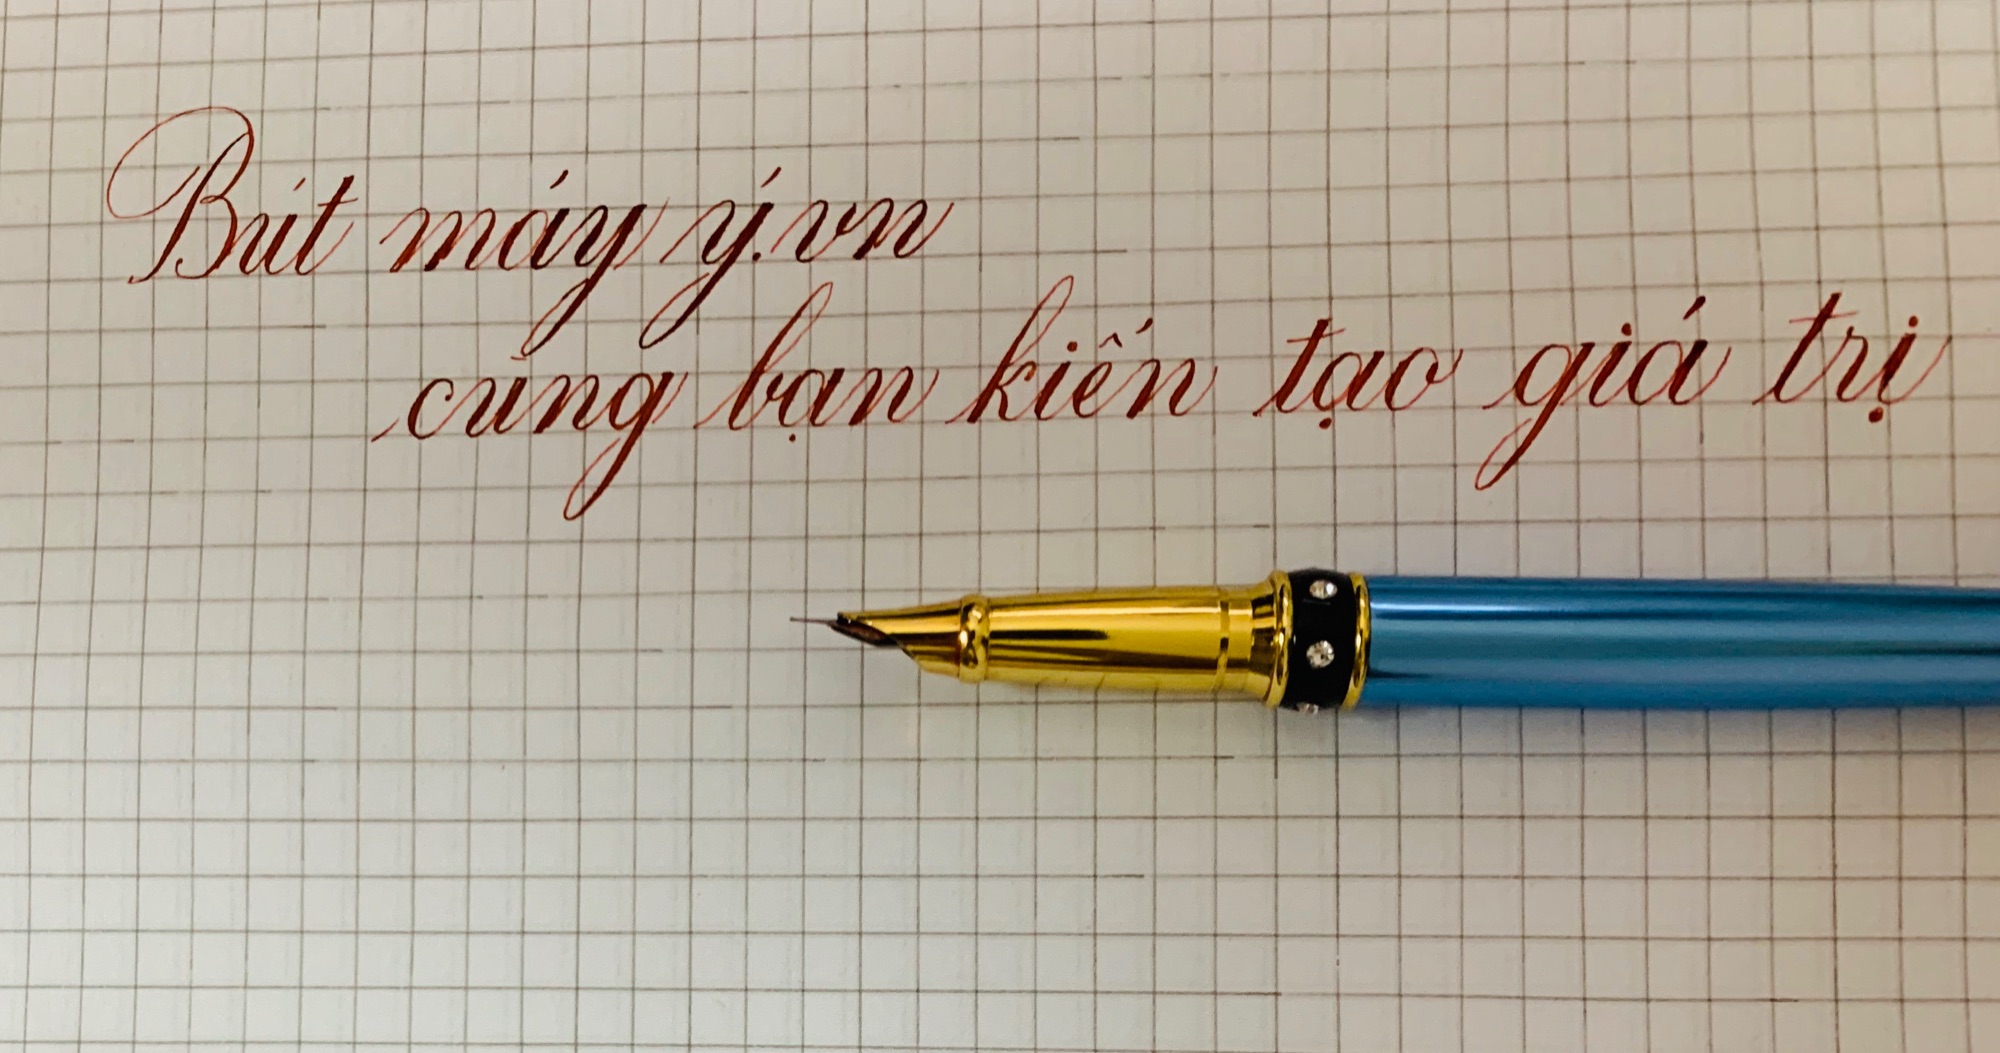 Bút máy ý.vn
cùng bạn kiến tạo giá trị